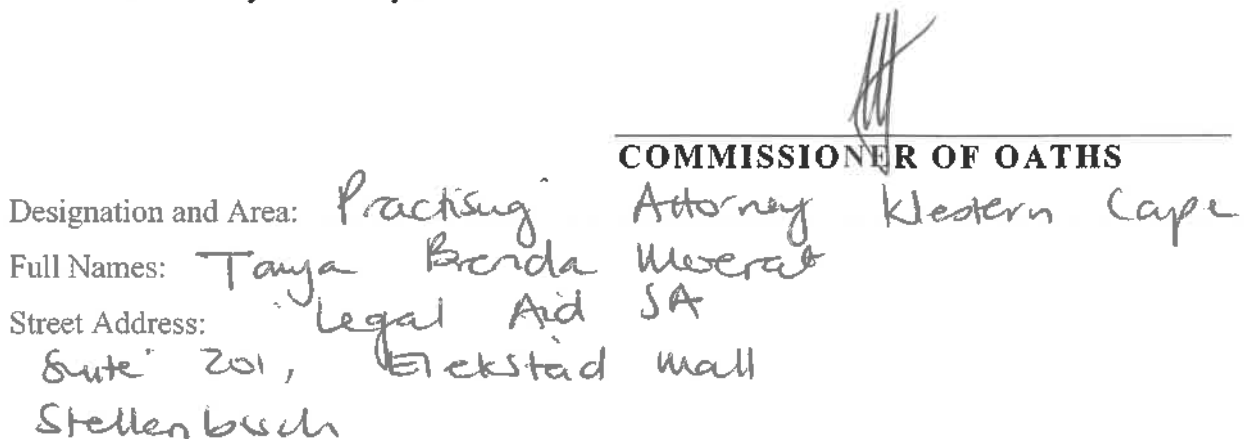 COMMISSIONER OF OATHS
Designation and Area: Practising Attorney Western Cape
Full Names: Tanya Brenda
Street Address: Legal Aid SA
Suite 201, Eikestad Mall
Stellenbosch